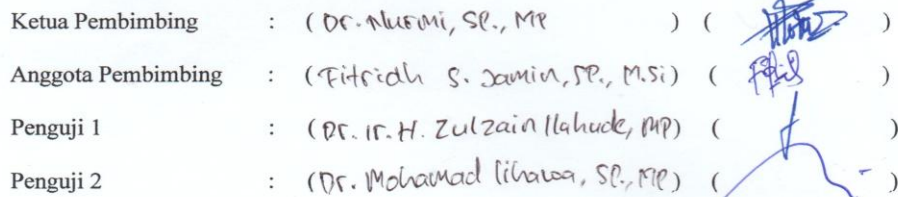 Ketua Pembimbing : (Dr. Nurmi, SP., MP ) ( )
Anggota Pembimbing : (Fitriah S. Jamin, SP., M.Si) ( )
Penguji 1 : (Dr. Ir. H. Zulzain Ilahude, MP) ( )
Penguji 2 : (Dr. Mohamad Lihawa, SP., MP) ( )